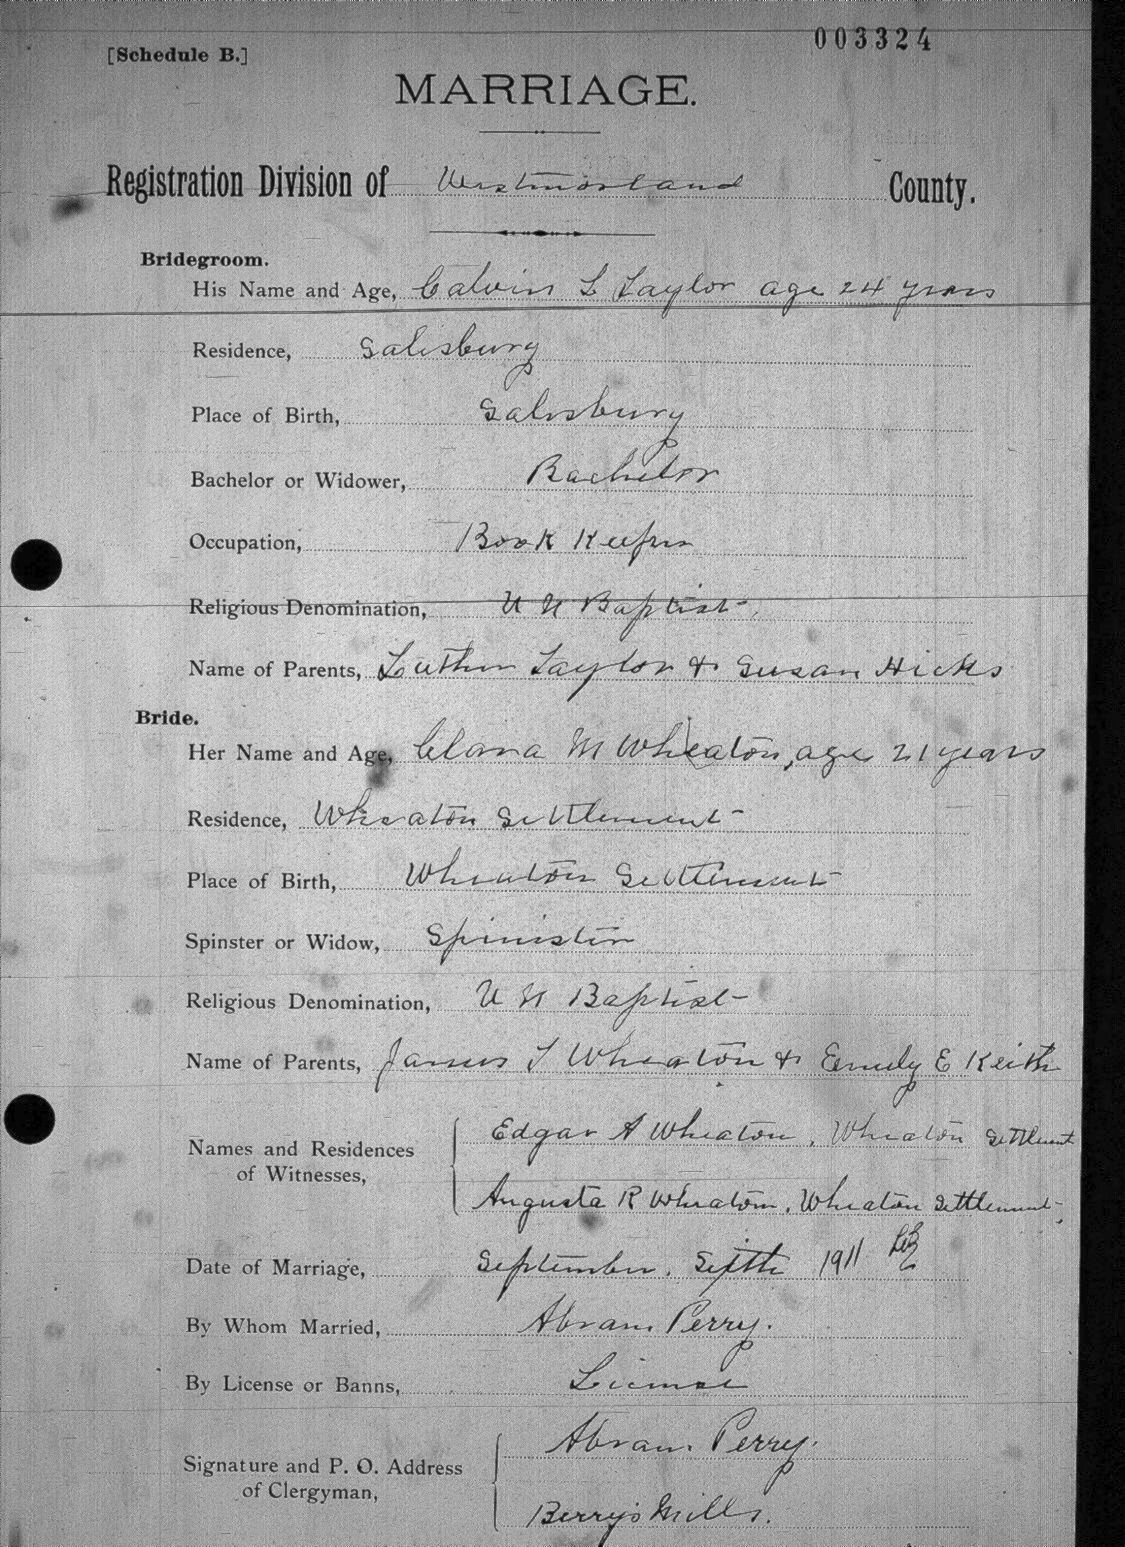 003324
[Schedule B.]
MARRIAGE.
Registration Division of Westmorland County.
Bridegroom.
His Name and Age, Calvin L Taylor age 24 years
Residence, Salisbury
Place of Birth, Salisbury
Bachelor or Widower, Bachelor
Occupation, Book Keeper
Religious Denomination, U U Baptist
Name of Parents, Luther Taylor & Susan Hicks
Bride.
Her Name and Age, Clara M Wheaton, age 21 years
Residence, Wheaton Settlement
Place of Birth, Wheaton Settlement
Spinster or Widow, Spinister
Religious Denomination, U U Baptist
Name of Parents, James T Wheaton & Emily E Keith
Names and Residences of Witnesses, Edgar A Wheaton, Wheaton Settlment
Augusta R Wheaton, Wheaton Settlement,
Date of Marriage, September, Sixth 1911
By Whom Married, Abram Perry.
By License or Banns, License
Signature and P. O. Address of Clergyman, Abram Perry.
Berry's Mills.